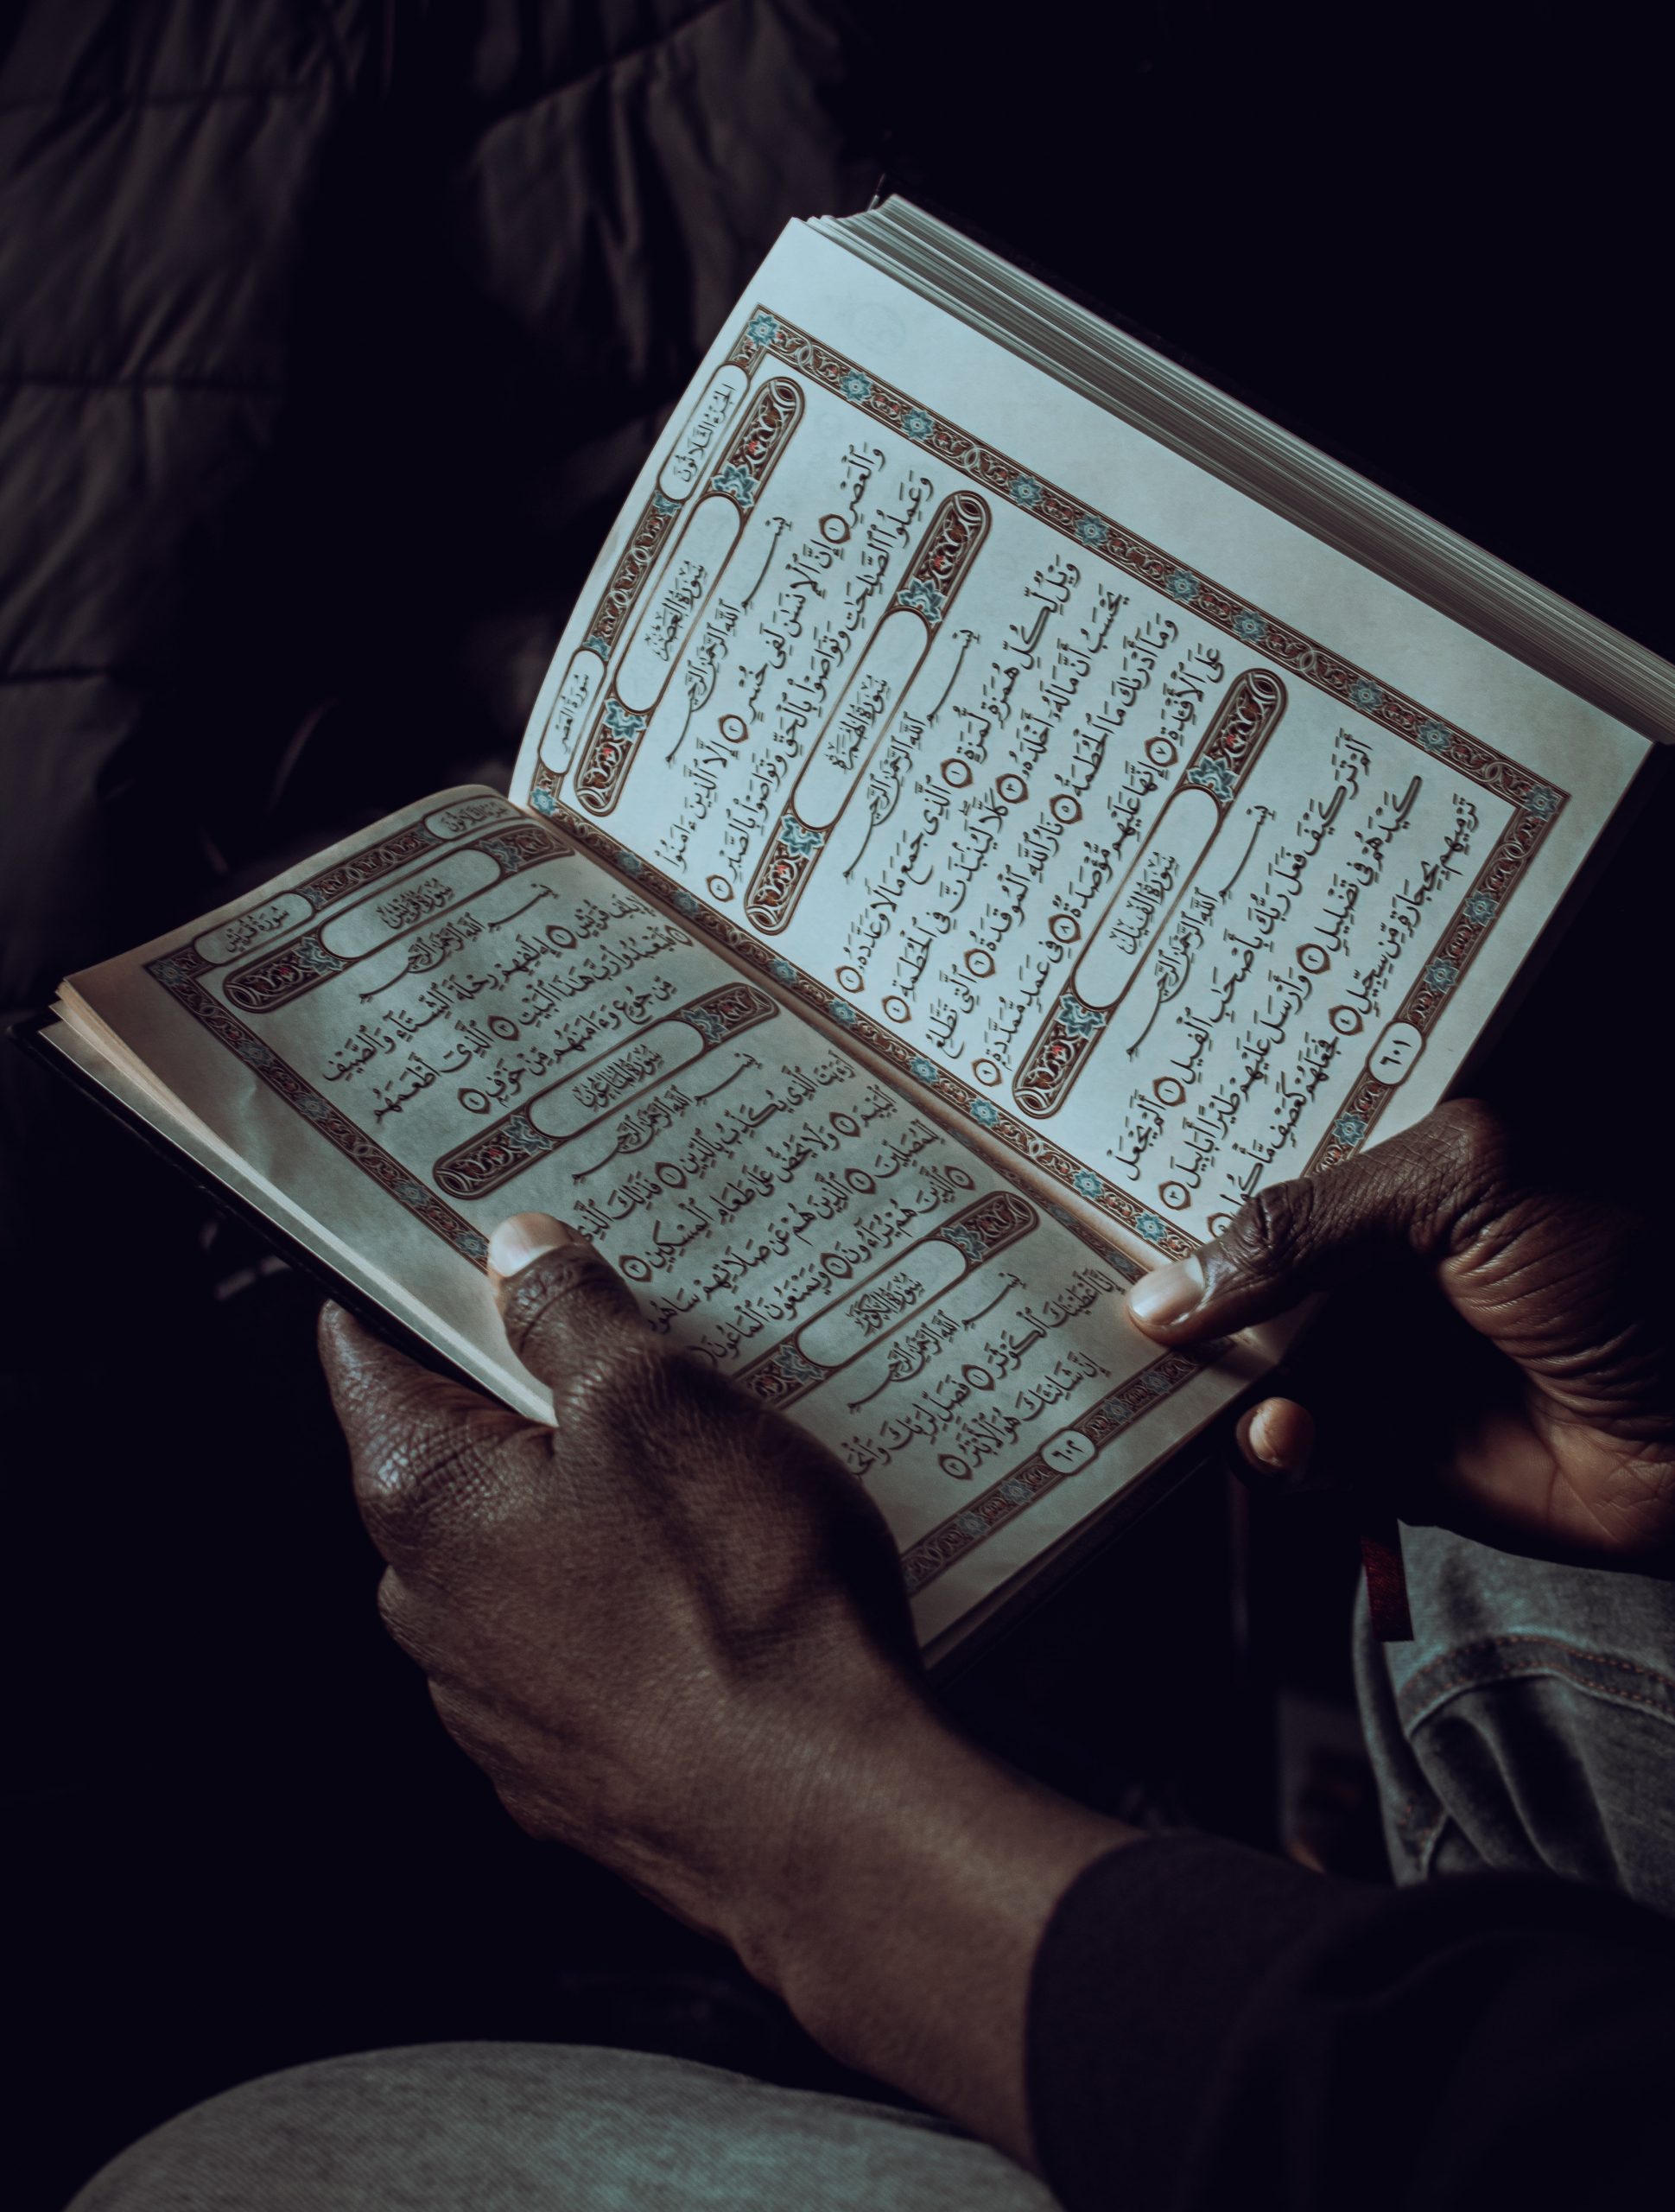 الجُزْءُ الثَّلَاثُونَ
سُورَةُ العَصْرِ
سُورَةُ العَصْرِ
بِسْمِ ٱللَّهِ ٱلرَّحْمَٰنِ ٱلرَّحِيمِ
وَٱلْعَصْرِ ١ إِنَّ ٱلْإِنسَٰنَ لَفِى خُسْرٍ ٢ إِلَّا ٱلَّذِينَ ءَامَنُوا۟
وَعَمِلُوا۟ ٱلصَّٰلِحَٰتِ وَتَوَاصَوْا۟ بِٱلْحَقِّ وَتَوَاصَوْا۟ بِٱلصَّبْرِ ٣
سُورَةُ الهُمَزَةِ
بِسْمِ ٱللَّهِ ٱلرَّحْمَٰنِ ٱلرَّحِيمِ
وَيْلٌ لِّكُلِّ هُمَزَةٍ لُّمَزَةٍ ١ ٱلَّذِى جَمَعَ مَالًا وَعَدَّدَهُۥ ٢
يَحْسَبُ أَنَّ مَالَهُۥٓ أَخْلَدَهُۥ ٣ كَلَّا لَيُنۢبَذَنَّ فِى ٱلْحُطَمَةِ ٤
وَمَآ أَدْرَىٰكَ مَا ٱلْحُطَمَةُ ٥ نَارُ ٱللَّهِ ٱلْمُوقَدَةُ ٦ ٱلَّتِى تَطَّلِعُ
عَلَى ٱلْأَفْـِٔدَةِ ٧ إِنَّهَا عَلَيْهِم مُّؤْصَدَةٌ ٨ فِى عَمَدٍ مُّمَدَّدَةٍۭ ٩
سُورَةُ الفِيلِ
بِسْمِ ٱللَّهِ ٱلرَّحْمَٰنِ ٱلرَّحِيمِ
أَلَمْ تَرَ كَيْفَ فَعَلَ رَبُّكَ بِأَصْحَٰبِ ٱلْفِيلِ ١ أَلَمْ يَجْعَلْ
كَيْدَهُمْ فِى تَضْلِيلٍ ٢ وَأَرْسَلَ عَلَيْهِمْ طَيْرًا أَبَابِيلَ ٣
تَرْمِيهِم بِحِجَارَةٍ مِّن سِجِّيلٍ ٤ فَجَعَلَهُمْ كَعَصْفٍ مَّأْكُولٍۭ
٦٠١
الجُزْءُ الثَّلَاثُونَ
سُورَةُ قُرَيْشٍ
سُورَةُ قُرَيْشٍ
بِسْمِ ٱللَّهِ ٱلرَّحْمَٰنِ ٱلرَّحِيمِ
لِإِيلَٰفِ قُرَيْشٍ ١ إِۦلَٰفِهِمْ رِحْلَةَ ٱلشِّتَآءِ وَٱلصَّيْفِ
٢ فَلْيَعْبُدُوا۟ رَبَّ هَٰذَا ٱلْبَيْتِ ٣ ٱلَّذِىٓ أَطْعَمَهُم
مِّن جُوعٍ وَءَامَنَهُم مِّنْ خَوْفٍۭ ٤
سُورَةُ المَاعُونِ
بِسْمِ ٱللَّهِ ٱلرَّحْمَٰنِ ٱلرَّحِيمِ
أَرَءَيْتَ ٱلَّذِى يُكَذِّبُ بِٱلدِّينِ ١ فَذَٰلِكَ ٱلَّذِى
ٱلْيَتِيمَ ٢ وَلَا يَحُضُّ عَلَىٰ طَعَامِ ٱلْمِسْكِينِ ٣
لِّلْمُصَلِّينَ ٤ ٱلَّذِينَ هُمْ عَن صَلَاتِهِمْ سَاهُونَ
٥ ٱلَّذِينَ هُمْ يُرَآءُونَ ٦ وَيَمْنَعُونَ ٱلْمَاعُونَ
سُورَةُ الكَوْثَرِ
بِسْمِ ٱللَّهِ ٱلرَّحْمَٰنِ ٱلرَّحِيمِ
إِنَّآ أَعْطَيْنَٰكَ ٱلْكَوْثَرَ ١ فَصَلِّ لِرَبِّكَ وَٱنْحَرْ
إِنَّ شَانِئَكَ هُوَ ٱلْأَبْتَرُ ٣
٦٠٢